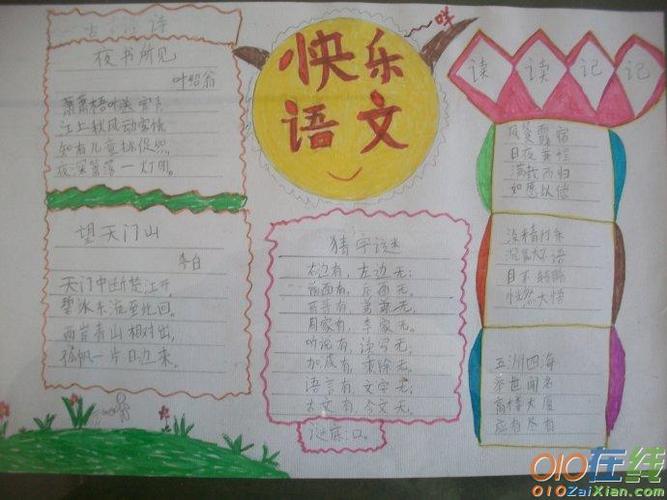 古 诗
夜书所见
叶绍翁
萧萧梧叶送寒声
江上秋风动客情
知有儿童挑促织
夜深篱落一灯明。
望天门山
李白
天门中断楚江开,
碧水东流至此回。
两岸青山相对出,
孤帆一片日边来。
快乐
语文
咩
猜字谜
右边有,左边无;
后面有,
哥哥有,
周家有,李家无。
听说有,读写无,
加减有,乘除无,
语言有,文字无。
古文有,今文无。
谜底:口。
读 读 记 记
风餐露宿
日夜兼程
满载而归
如愿以偿
沉默不语
目不转睛
恍然大悟
五洲四海
举世闻名
高楼大厦
应有尽有
010在线
010ZaiXian.com